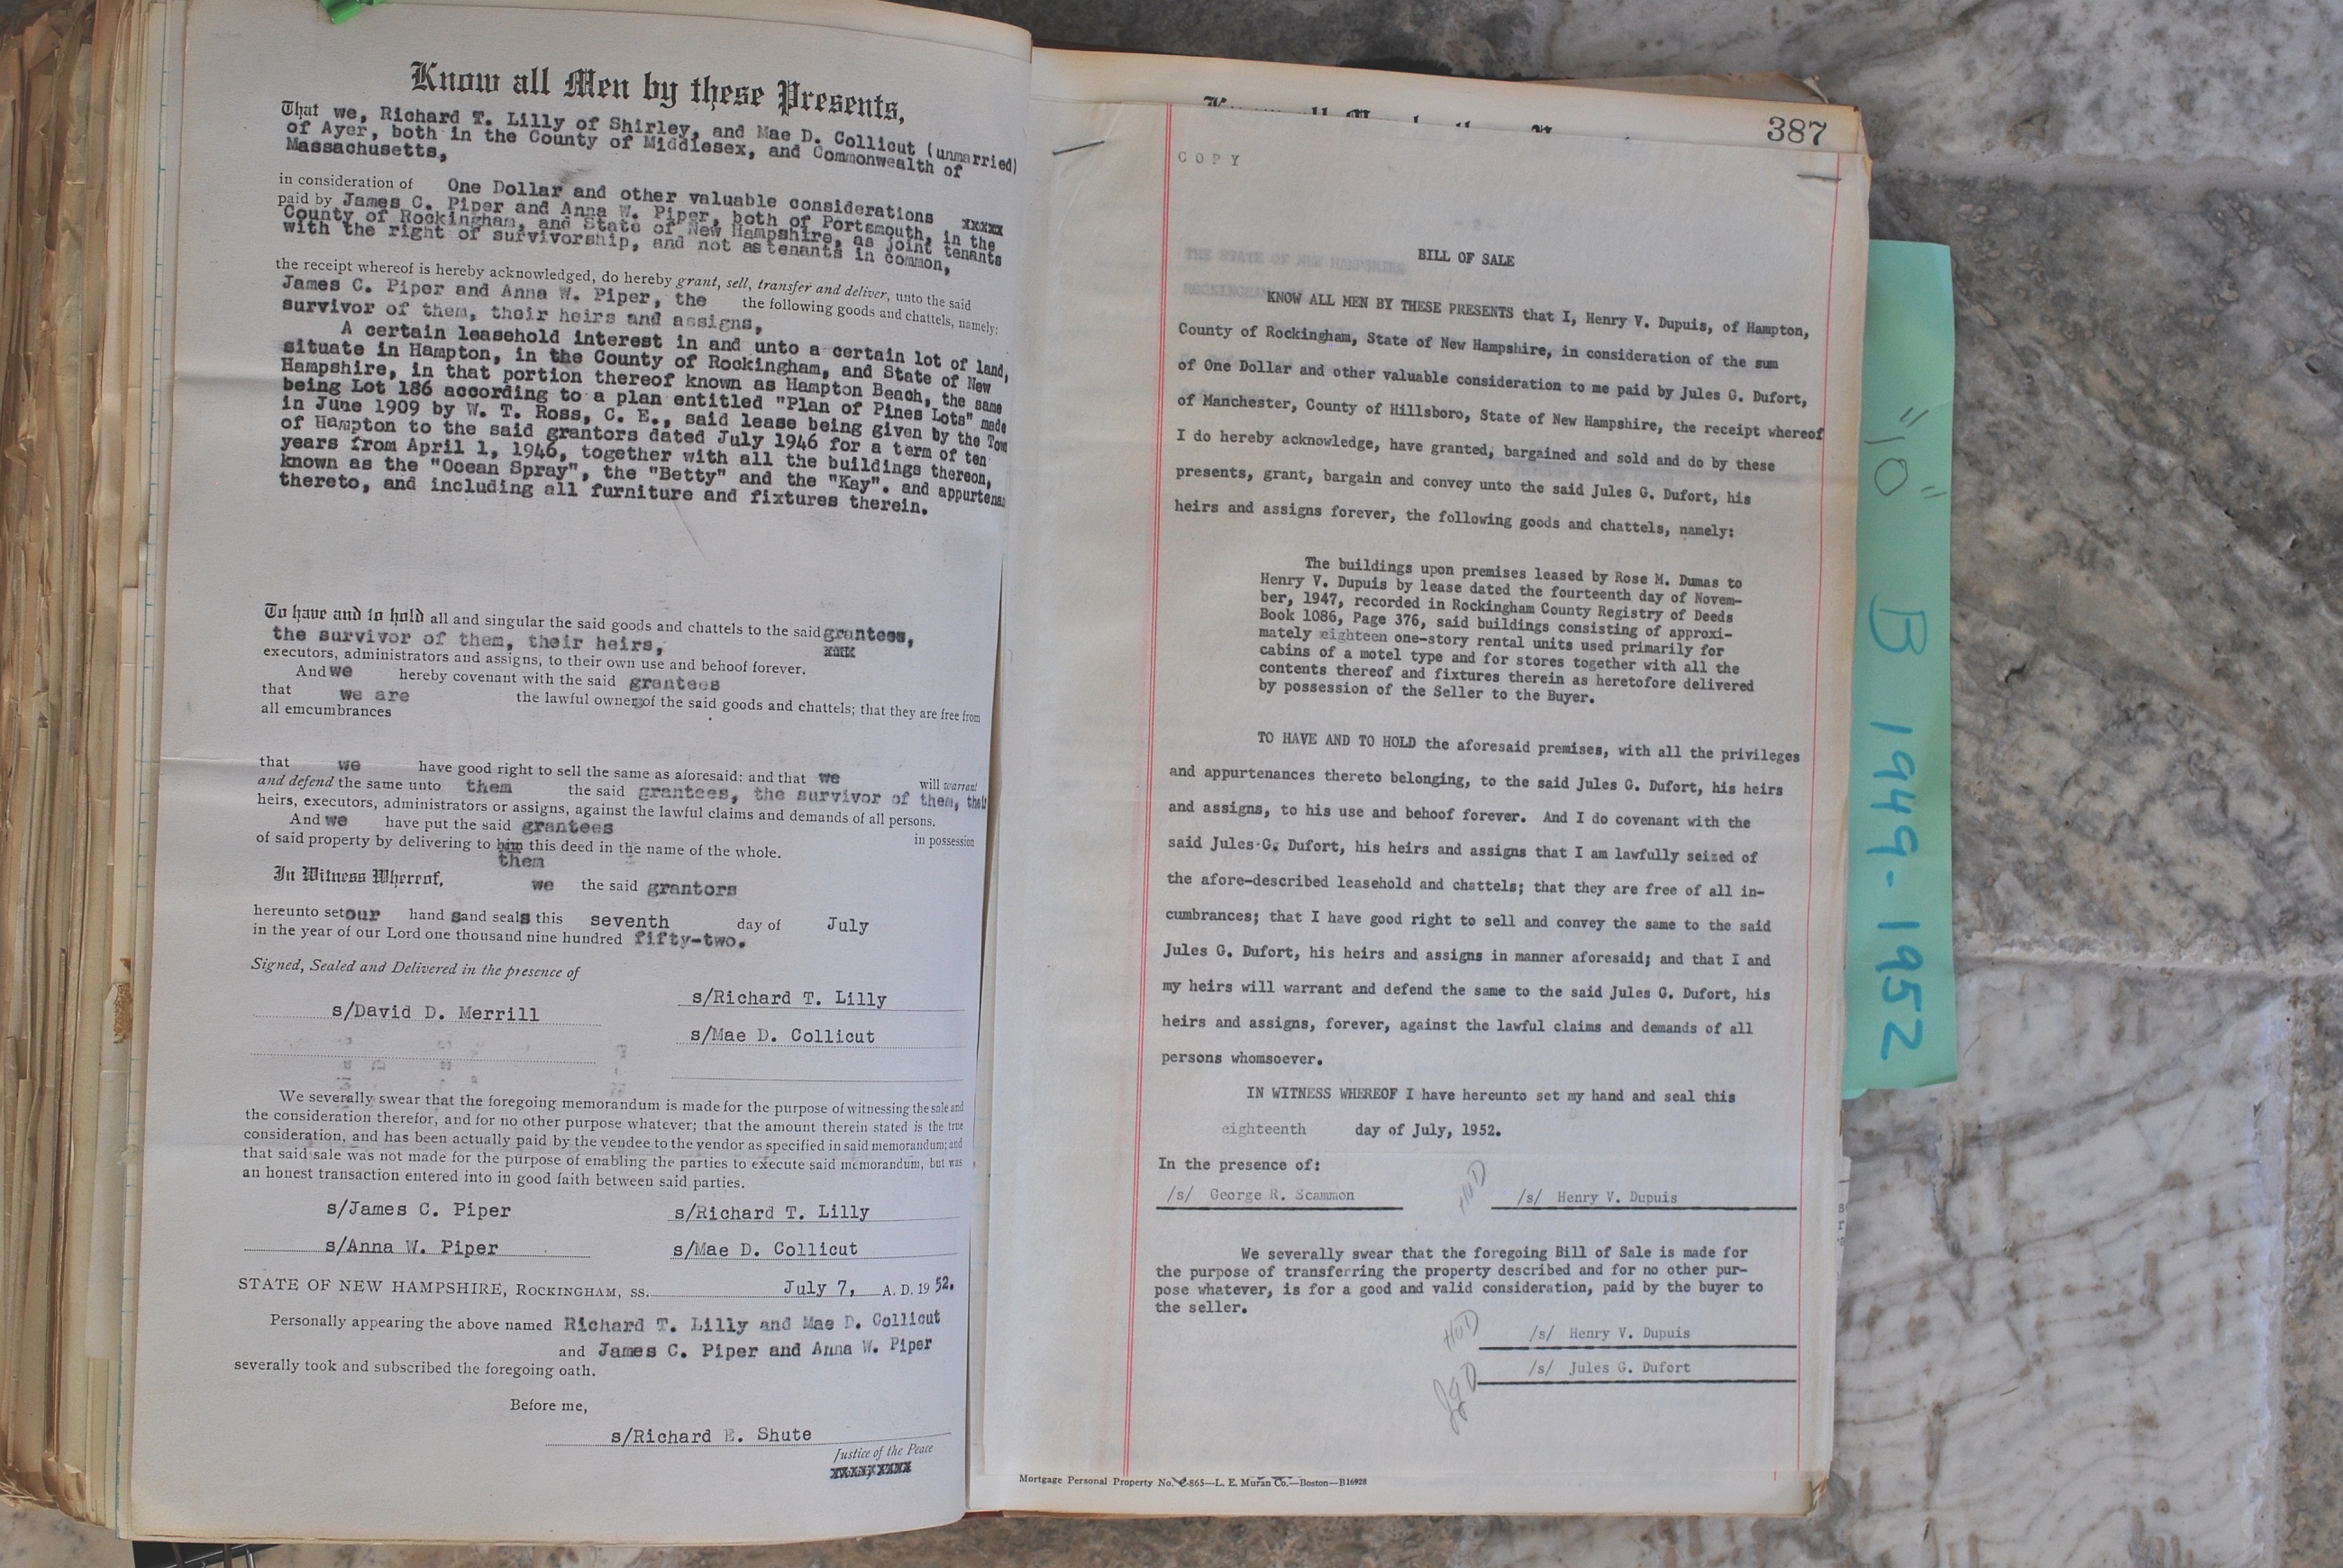 Know all Men by these Presents,
That we, Richard T. Lilly of Shirley, and Mae D. Collicut (unmarried)
of Ayer, both in the County of Middlesex, and Commonwealth of
Massachusetts,
in consideration of One Dollar and other valuable considerations xxxxx
paid by James C. Piper and Anna W. Piper, both of Portsmouth, in the
County of Rockingham, and State of New Hampshire, as joint tenants
with the right of survivorship, and not as tenants in common,
the receipt whereof is hereby acknowledged, do hereby grant, sell, transfer and deliver, unto the said
James C. Piper and Anna W. Piper, the the following goods and chattels, namely:
survivor of them, their heirs and assigns,
A certain leasehold interest in and unto a certain lot of land,
situate in Hampton, in the County of Rockingham, and State of New
Hampshire, in that portion thereof known as Hampton Beach, the same
being Lot 186 according to a plan entitled "Plan of Pines Lots" made
in June 1909 by W. T. Ross, C. E., said lease being given by the Tow
of Hampton to the said grantors dated July 1946 for a term of ten
years from April 1, 1946, together with all the buildings thereon,
known as the "Ocean Spray", the "Betty" and the "Kay". and appurtenan
thereto, and including all furniture and fixtures therein.
To have and to hold all and singular the said goods and chattels to the said grantees,
the survivor of them, their heirs, xxxx
executors, administrators and assigns, to their own use and behoof forever.
And we hereby covenant with the said grantees
that we are the lawful owners of the said goods and chattels; that they are free from
all emcumbrances
that we have good right to sell the same as aforesaid: and that we will warrant
and defend the same unto them the said grantees, the survivor of them, their
heirs, executors, administrators or assigns, against the lawful claims and demands of all persons.
And we have put the said grantees in possession
of said property by delivering to him this deed in the name of the whole.
them
In Witness Whereof, we the said grantors
hereunto set our hand s and seals this seventh day of July
in the year of our Lord one thousand nine hundred fifty-two.
Signed, Sealed and Delivered in the presence of
s/David D. Merrill s/Richard T. Lilly
s/Mae D. Collicut
We severally swear that the foregoing memorandum is made for the purpose of witnessing the sale and
the consideration therefor, and for no other purpose whatever; that the amount therein stated is the true
consideration, and has been actually paid by the vendee to the vendor as specified in said memorandum; and
that said sale was not made for the purpose of enabling the parties to execute said memorandum, but was
an honest transaction entered into in good faith between said parties.
s/James C. Piper s/Richard T. Lilly
s/Anna W. Piper s/Mae D. Collicut
STATE OF NEW HAMPSHIRE, ROCKINGHAM, SS. July 7, A. D. 19 52.
Personally appearing the above named Richard T. Lilly and Mae D. Collicut
and James C. Piper and Anna W. Piper
severally took and subscribed the foregoing oath.
Before me,
s/Richard E. Shute
Justice of the Peace
xxxxxxxxx
387
COPY
BILL OF SALE
THE STATE OF NEW HAMPSHIRE
KNOW ALL MEN BY THESE PRESENTS that I, Henry V. Dupuis, of Hampton,
County of Rockingham, State of New Hampshire, in consideration of the sum
of One Dollar and other valuable consideration to me paid by Jules G. Dufort,
of Manchester, County of Hillsboro, State of New Hampshire, the receipt whereof
I do hereby acknowledge, have granted, bargained and sold and do by these
presents, grant, bargain and convey unto the said Jules G. Dufort, his
heirs and assigns forever, the following goods and chattels, namely:
The buildings upon premises leased by Rose M. Dumas to
Henry V. Dupuis by lease dated the fourteenth day of Novem-
ber, 1947, recorded in Rockingham County Registry of Deeds
Book 1086, Page 376, said buildings consisting of approxi-
mately eighteen one-story rental units used primarily for
cabins of a motel type and for stores together with all the
contents thereof and fixtures therein as heretofore delivered
by possession of the Seller to the Buyer.
TO HAVE AND TO HOLD the aforesaid premises, with all the privileges
and appurtenances thereto belonging, to the said Jules G. Dufort, his heirs
and assigns, to his use and behoof forever. And I do covenant with the
said Jules G. Dufort, his heirs and assigns that I am lawfully seized of
the afore-described leasehold and chattels; that they are free of all in-
cumbrances; that I have good right to sell and convey the same to the said
Jules G. Dufort, his heirs and assigns in manner aforesaid; and that I and
my heirs will warrant and defend the same to the said Jules G. Dufort, his
heirs and assigns, forever, against the lawful claims and demands of all
persons whomsoever.
IN WITNESS WHEREOF I have hereunto set my hand and seal this
eighteenth day of July, 1952.
In the presence of:
/s/ George R. Scammon HVD /s/ Henry V. Dupuis
We severally swear that the foregoing Bill of Sale is made for
the purpose of transferring the property described and for no other pur-
pose whatever, is for a good and valid consideration, paid by the buyer to
the seller.
HVD /s/ Henry V. Dupuis
JGD /s/ Jules G. Dufort
Mortgage Personal Property No. C-865—L. E. Muran Co.—Boston—B16928
"10" B 1949-1952